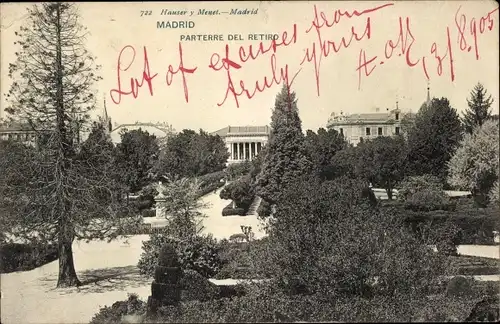 722 Hauser y Menet.—Madrid
MADRID
PARTERRE DEL RETIRO
Lot of excuses from
truly yours
A.M. 13/8.903